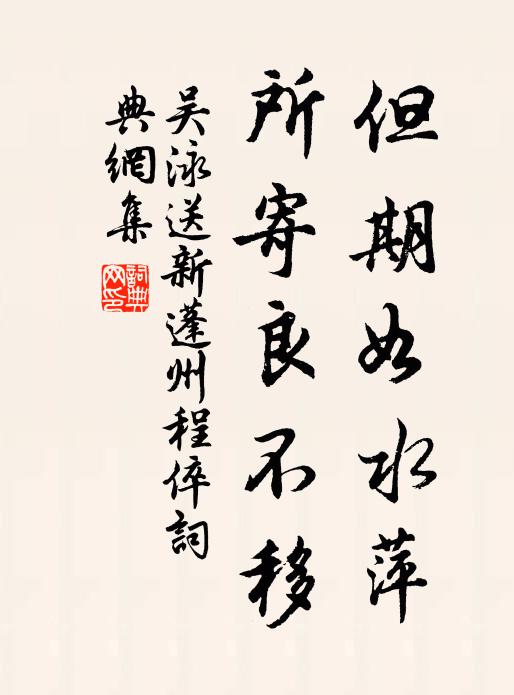 但期如水萍
所寄良不移
吴泳送新蓬州程倅詞
典網集
詞典
网印